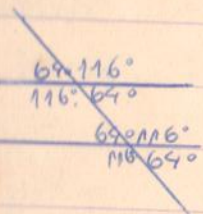 64° 116°
116° 64°
64° 116°
116 64°